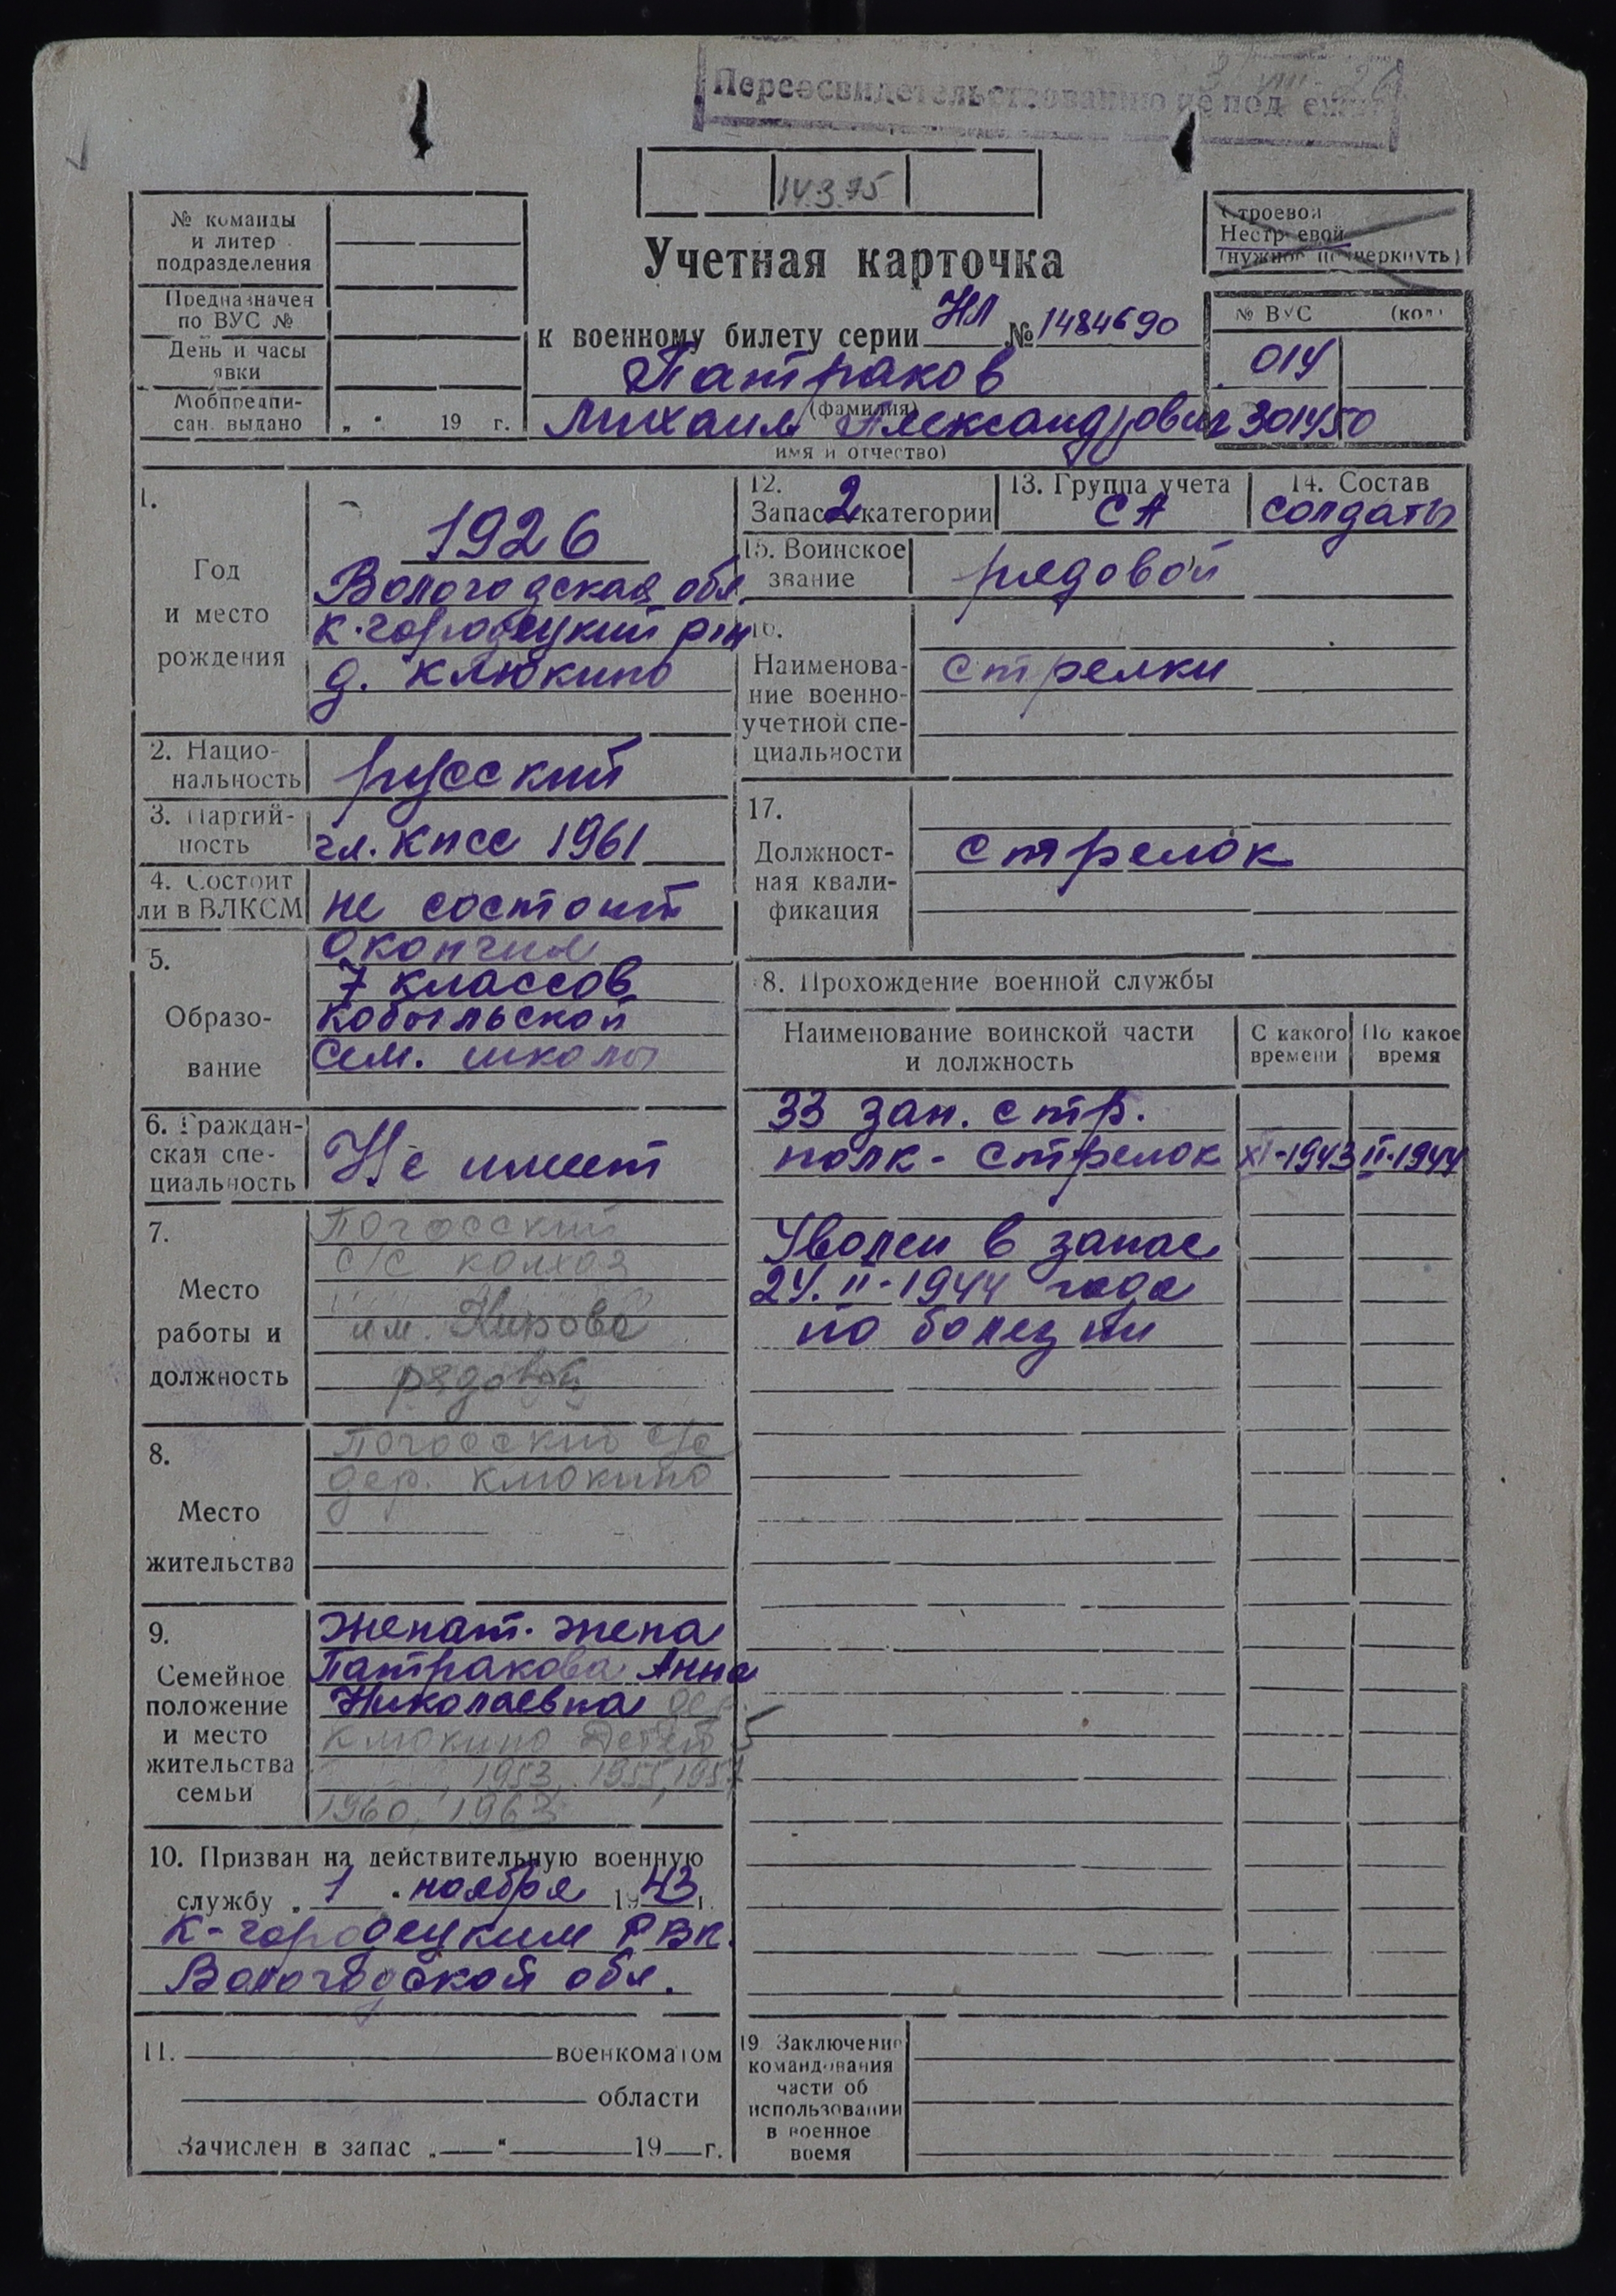 Переосвидетельствованию не под
14.3.75
№ команды
и литер
подразделения
Предназначен
по ВУС №
День и часы
явки
Мобпредпи-
сан. выдано
„ “ 19 г.
Строевой
Нестроевой
(нужное подчеркнуть)
Учетная карточка
к военному билету серии НЛ № 1484690
№ ВУС (код)
014
Патраков
(фамилия)
Михаил Александрович 301450
имя и отчество)
1.
Год
и место
рождения
1926
Вологодская обл
К-городецкий р-н
д. Клюкино
2. Нацио-
нальность
русский
3. Партий-
ность
чл. КПСС 1961
4. Состоит
ли в ВЛКСМ
не состоит
5.
Образо-
вание
Окончил
7 классов
Кобыльской
сем. школы
6. Граждан-
ская спе-
циальность
Не имеет
7.
Место
работы и
должность
Погосский
с/с колхоз
им. Кирова
рядовой
8.
Место
жительства
Погосский с/с
дер. Клюкино
9.
Семейное
положение
и место
жительства
семьи
женат. жена
Патракова Анна
Николаевна дер.
Клюкино Детей 5
1953, 1955, 1957
1960, 1963
10. Призван на действительную военную
службу „ 1 “ ноября 1943 г.
К-городецким РВК.
Вологодской обл.
11. военкоматом
области
Зачислен в запас „ “ 19 г.
12.
Запас 2 категории
13. Группа учета
СА
14. Состав
солдаты
15. Воинское
звание
рядовой
16.
Наименова-
ние военно-
учетной спе-
циальности
стрелки
17.
Должност-
ная квали-
фикация
стрелок
18. Прохождение военной службы
Наименование воинской части
и должность
С какого
времени
По какое
время
33 зап. стр.
полк - стрелок XI-1943 II-1944
Уволен в запас
24.II-1944 года
по болезни
19. Заключение
командования
части об
использовании
в военное
время